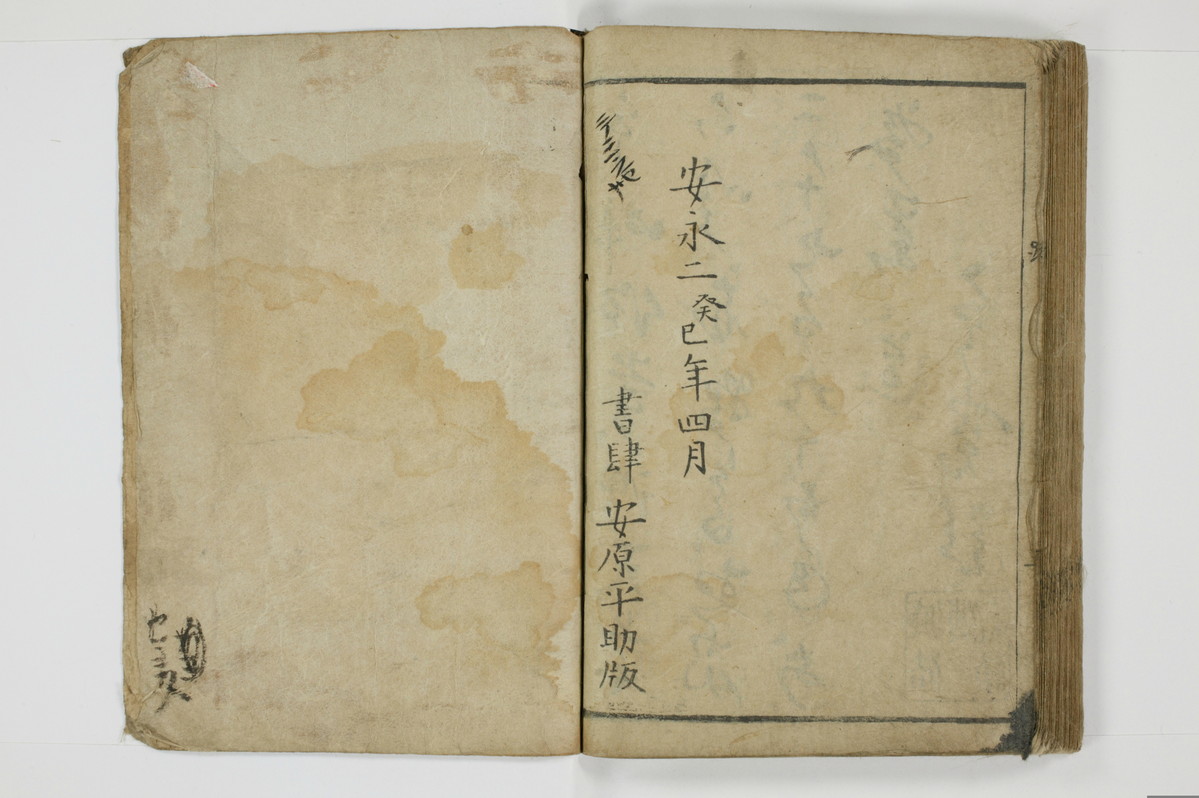 安永二癸巳年四月
書肆 安原平助版